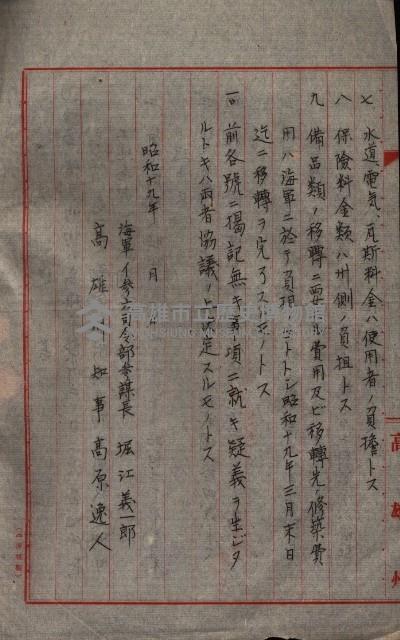 七 水道、電気、瓦斯料金ハ使用者ノ負擔トス
八 保險料金類ハ州側ノ負担トス
九 備品類ノ移轉ニ要スル費用及ビ移轉先ノ修築費
用ハ海軍ニ於テ負担スルコトトシ昭和十九年三月末日
迄ニ移轉ヲ完了スルモノトス
一〇 前各號ニ揭記無キ事項ニ就キ疑義ヲ生ジタ
ルトキハ両者協議ノ上決定スルモノトス
昭和十九年 月 日
海軍イ参六司令部参謀長 堀江義一郎
高雄州知事高原逸人
高雄州
高雄市立歷史博物館